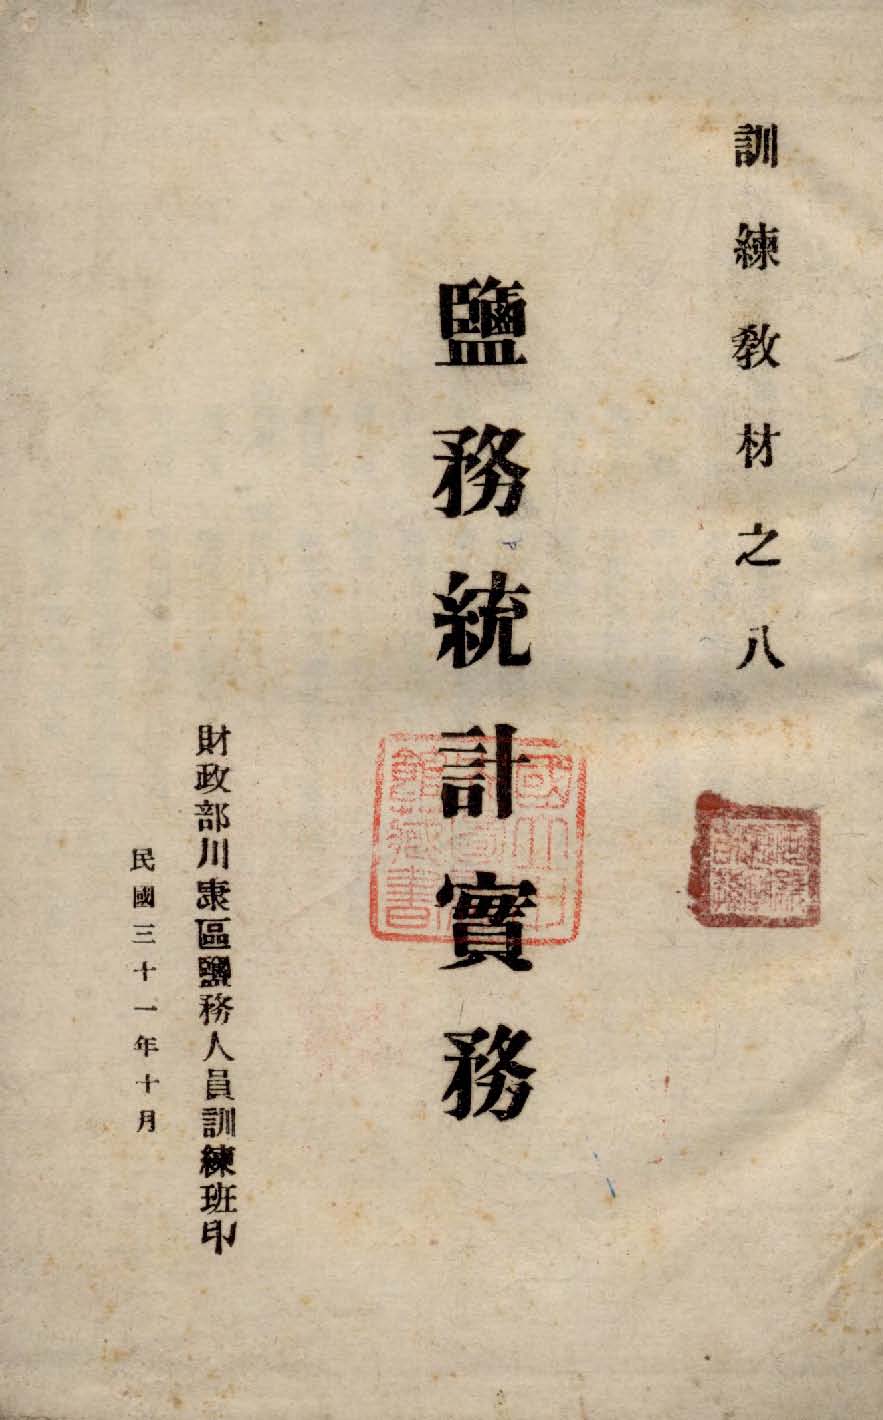 訓練教材之八
鹽務統計實務
財政部川東區鹽務人員訓練班印
民國三十一年十月